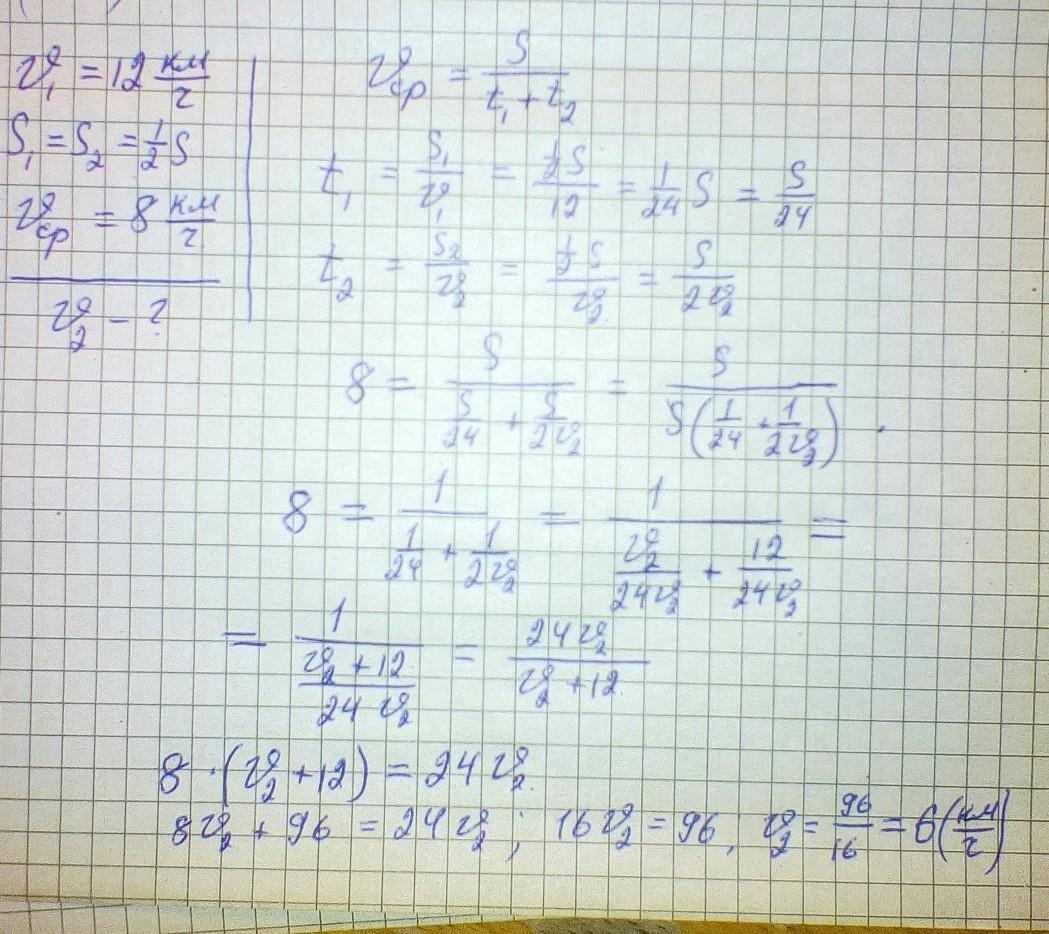 v₁ = 12 км/ч
S₁ = S₂ = 1/2 S
vср = 8 км/ч
v₂ - ?
vср = S/(t₁ + t₂)
t₁ = S₁/v₁ = (1/2 S)/12 = 1/24 S = S/24
t₂ = S₂/v₂ = (1/2 S)/v₂ = S/(2v₂)
8 = S/(S/24 + S/(2v₂)) = S/(S(1/24 + 1/(2v₂))) .
8 = 1/(1/24 + 1/(2v₂)) = 1/(v₂/(24v₂) + 12/(24v₂)) =
= 1/((v₂ + 12)/(24v₂)) = 24v₂/(v₂ + 12)
8 · (v₂ + 12) = 24v₂
8v₂ + 96 = 24v₂ ; 16v₂ = 96, v₂ = 96/16 = 6 (км/ч)